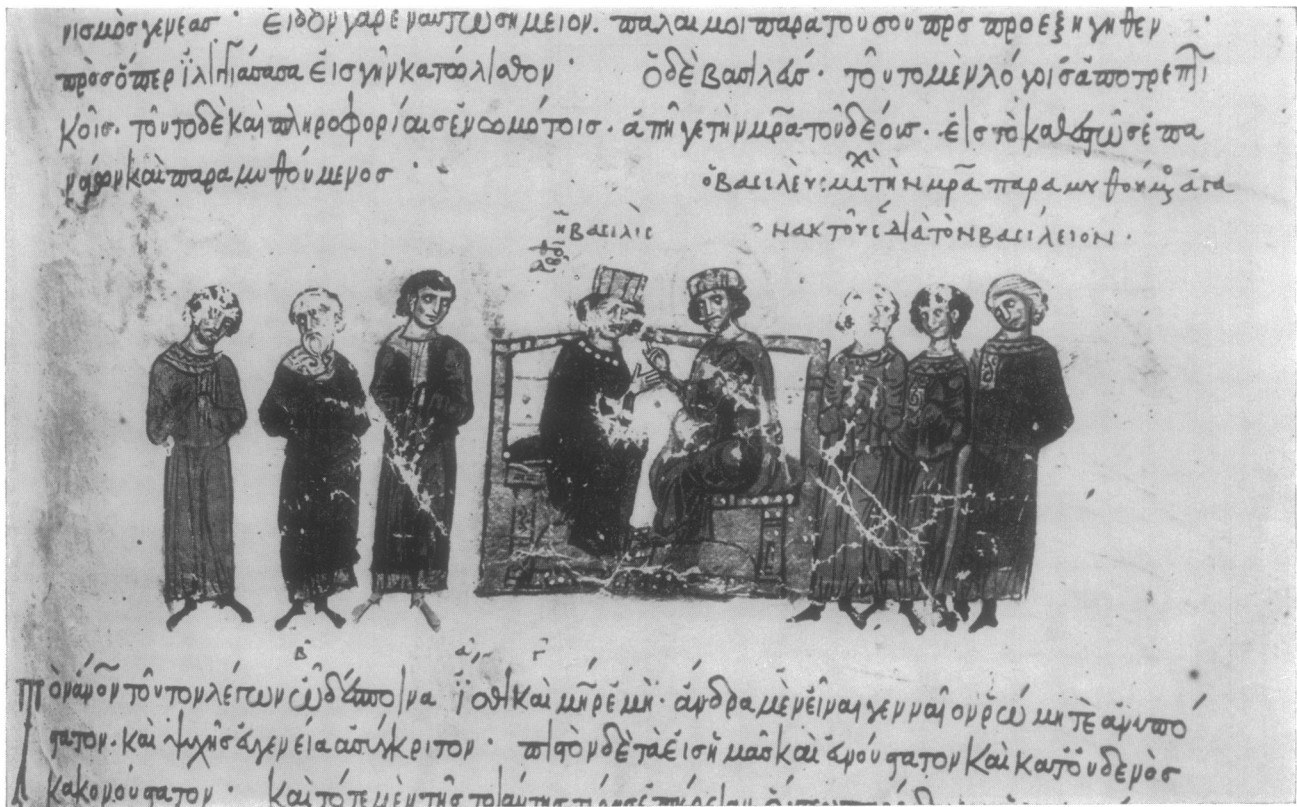 νισμὸς γενεᾶς · εἶδον γὰρ ἐν αὐτῶ σημεῖον. πάλαι μοι παρὰ τοῦ σοῦ πρς προεξηγηθὲν ·
πρὸς ὅπερ ἰλιγγιάσασα εἰς γὴν κατώλισθον · ὁ δὲ βασιλεὺς · τοῦτο μὲν λόγοις ἀποτρεπτι
κοῖς. τοῦτο δὲ καὶ πληροφορίαις ἐνωμότοις. ἀπῆγε τὴν μρα τοῦ δέους. εἰς τὸ καθεστὼς ἐπα
νάγων καὶ παραμυθούμενος ·
ὁ βασιλεὺς μιχ τὴν μρα παραμυθούμς ἀγα
ἡ βασιλὶς
νακτοῦς διὰ τὸν βασίλειον ·
Τὸν ἄνον τοῦτον λέγων ὦ δέσποινα ἴσθι καὶ μῆρ ἐμὴ · ἄνδρα μὲν εἶναι γενναῖον ῥώμη τε ἀνυπό
στατον. καὶ ψυχῆς ἀγενεία ἀσύγκριτον · πιστὸν δὲ τὰ εἰς ἡμᾶς καὶ εὐνούστατον καὶ κατ οὐδενὸς
κακονούστατον · καὶ τότε μὲν τῆς τοιαύτης